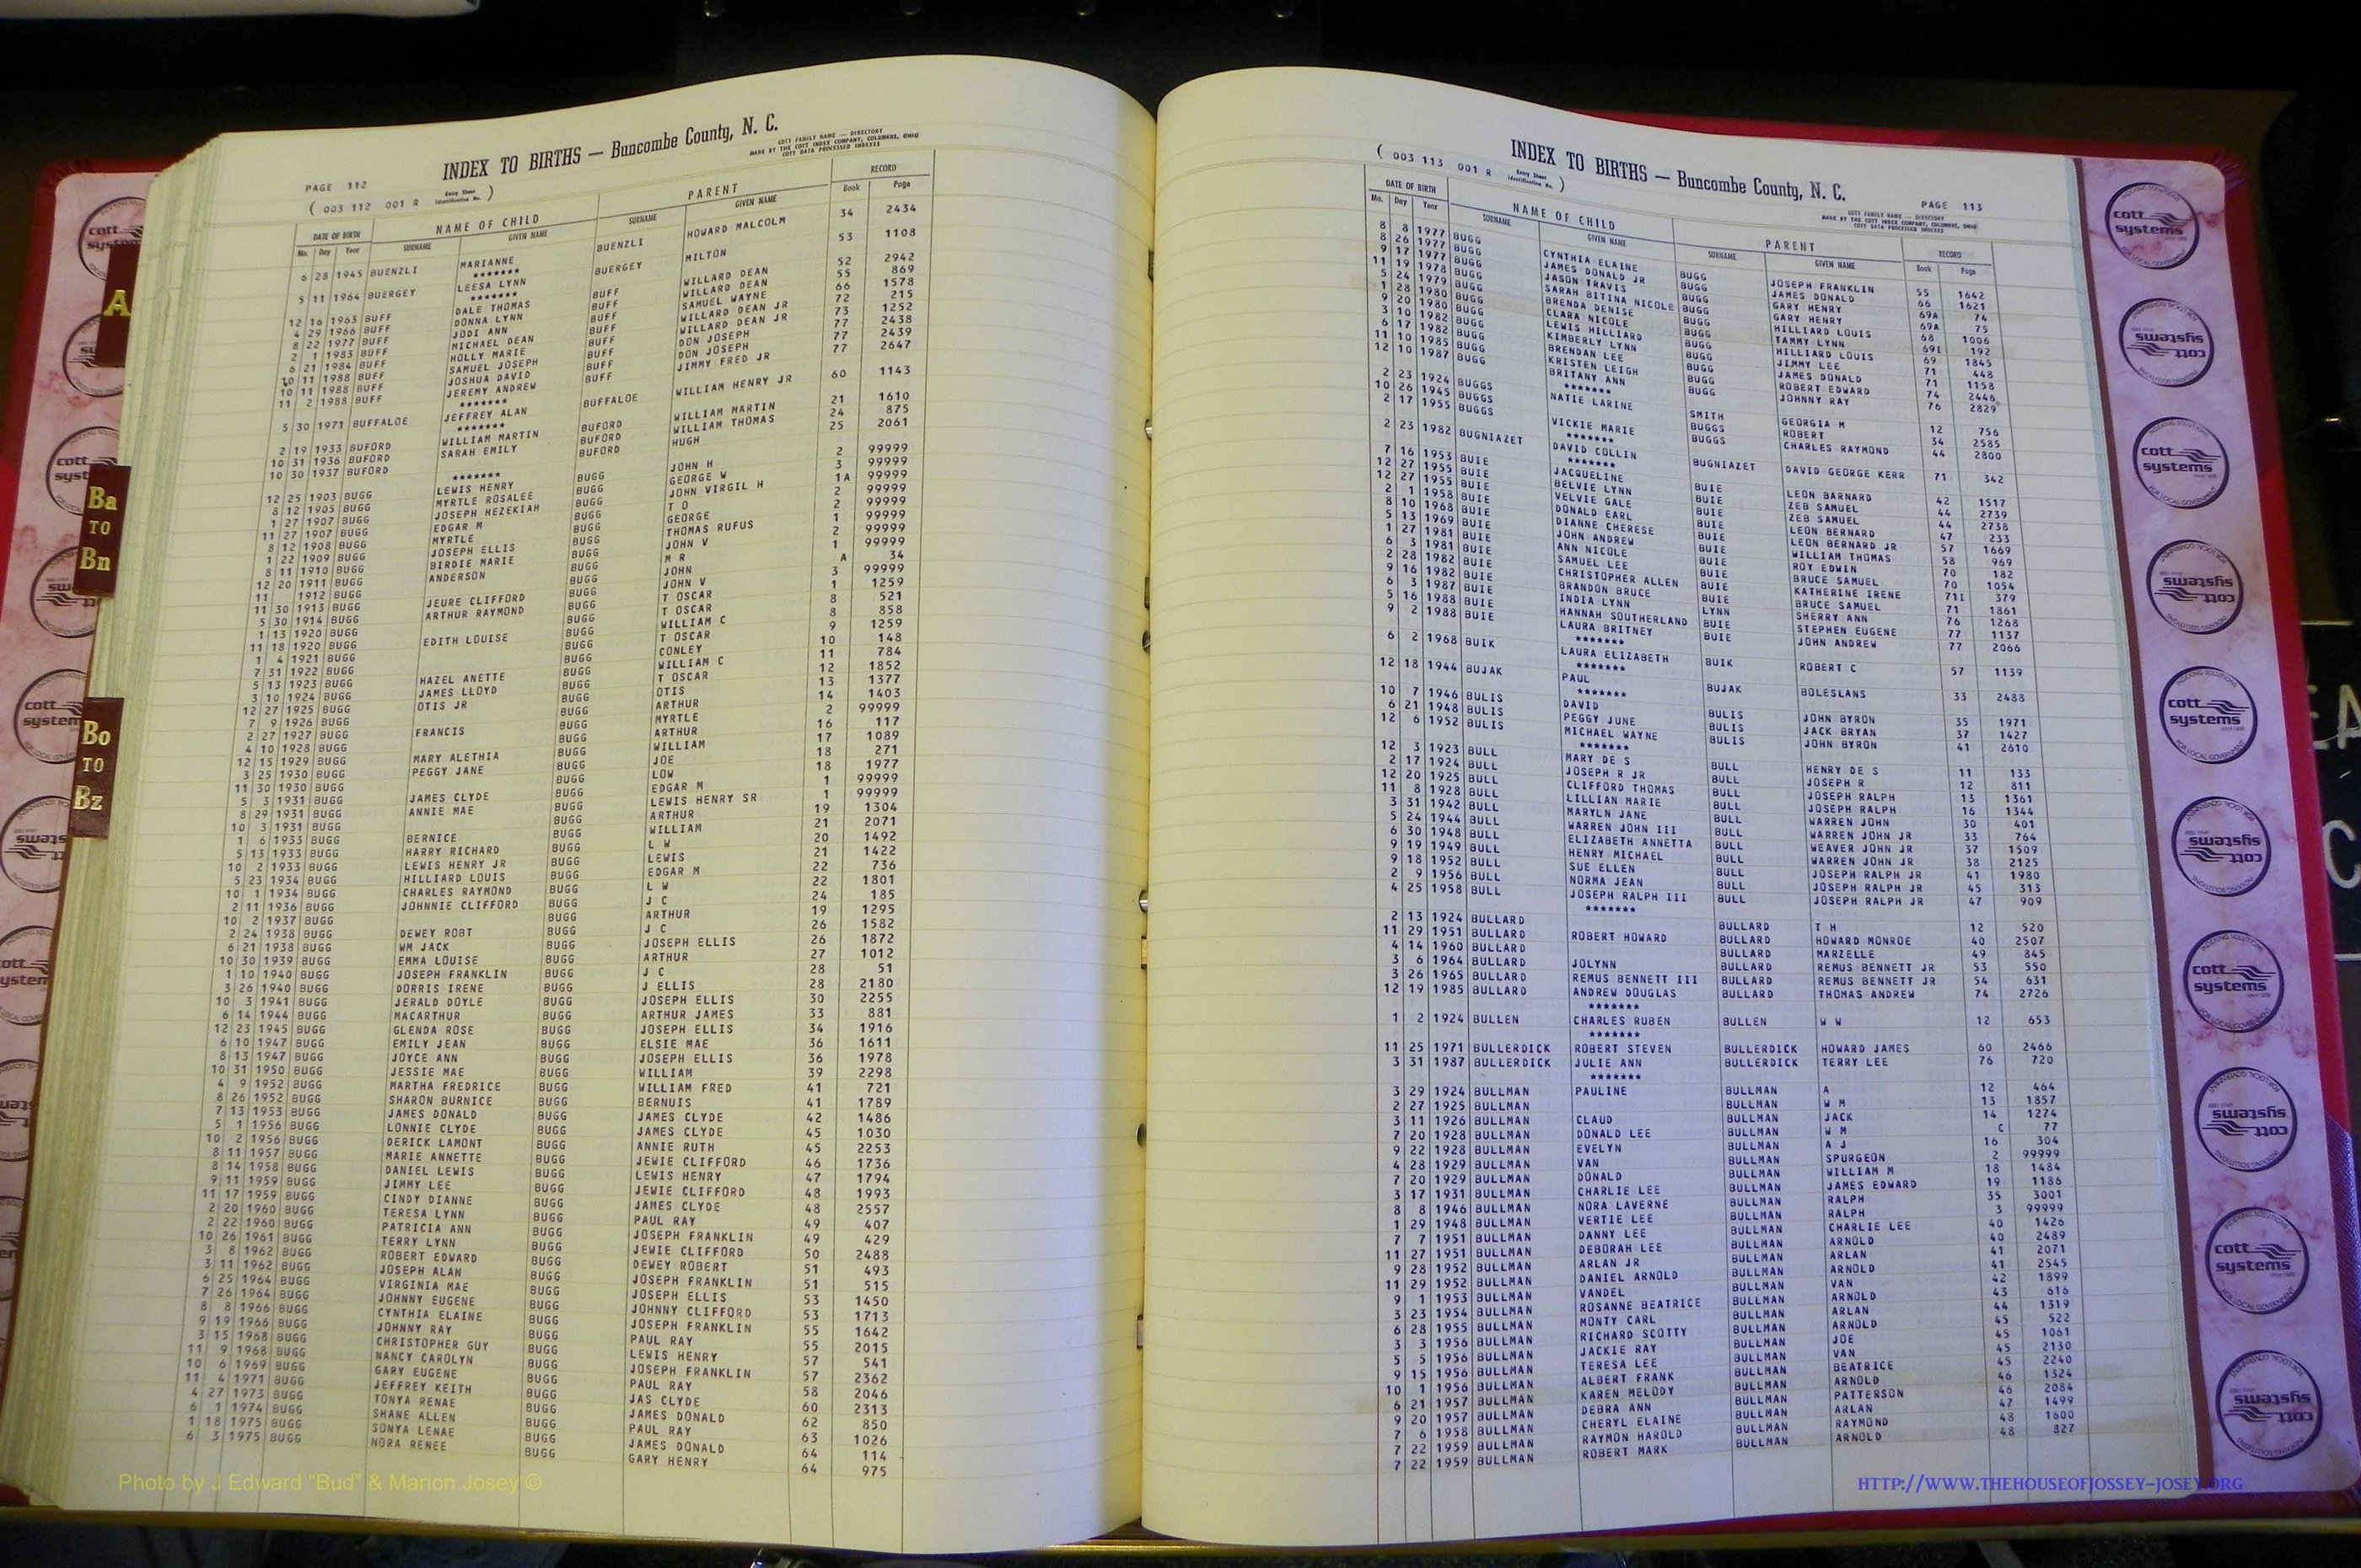 INDEX TO BIRTHS — Buncombe County, N. C.
COTT FAMILY NAME — DIRECTORY
MADE BY THE COTT INDEX COMPANY, COLUMBUS, OHIO
COTT DATA PROCESSED INDEXES
PAGE 112
( 003 112 001 R Entry Sheet Identification No. )
DATE OF BIRTH NAME OF CHILD PARENT RECORD
Mo. Day Year SURNAME GIVEN NAME SURNAME GIVEN NAME Book Page
6 28 1945 BUENZLI MARIANNE BUENZLI HOWARD MALCOLM 34 2434
*******
5 11 1964 BUERGEY LEESA LYNN BUERGEY MILTON 53 1108
*******
12 16 1963 BUFF DALE THOMAS BUFF WILLARD DEAN 52 2942
4 29 1966 BUFF DONNA LYNN BUFF WILLARD DEAN 55 869
8 22 1977 BUFF JODI ANN BUFF SAMUEL WAYNE 66 1578
2 1 1983 BUFF MICHAEL DEAN BUFF WILLARD DEAN JR 72 215
6 21 1984 BUFF HOLLY MARIE BUFF WILLARD DEAN JR 73 1252
10 11 1988 BUFF SAMUEL JOSEPH BUFF DON JOSEPH 77 2438
10 11 1988 BUFF JOSHUA DAVID BUFF DON JOSEPH 77 2439
11 2 1988 BUFF JEREMY ANDREW BUFF JIMMY FRED JR 77 2647
*******
5 30 1971 BUFFALOE JEFFREY ALAN BUFFALOE WILLIAM HENRY JR 60 1143
*******
2 19 1933 BUFORD WILLIAM MARTIN BUFORD WILLIAM MARTIN 21 1610
10 31 1936 BUFORD SARAH EMILY BUFORD WILLIAM THOMAS 24 875
10 30 1937 BUFORD BUFORD HUGH 25 2061
*******
12 25 1903 BUGG LEWIS HENRY BUGG JOHN H 2 99999
8 12 1905 BUGG MYRTLE ROSALEE BUGG GEORGE W 3 99999
1 27 1907 BUGG JOSEPH HEZEKIAH BUGG JOHN VIRGIL H 1A 99999
11 27 1907 BUGG EDGAR M BUGG T O 2 99999
8 12 1908 BUGG MYRTLE BUGG GEORGE 2 99999
1 22 1909 BUGG JOSEPH ELLIS BUGG THOMAS RUFUS 1 99999
8 11 1910 BUGG BIRDIE MARIE BUGG JOHN V 2 99999
12 20 1911 BUGG ANDERSON BUGG M R 1 99999
11 1912 BUGG BUGG JOHN A 34
11 30 1913 BUGG JEURE CLIFFORD BUGG JOHN V 3 99999
5 30 1914 BUGG ARTHUR RAYMOND BUGG T OSCAR 1 1259
1 13 1920 BUGG BUGG T OSCAR 8 521
11 18 1920 BUGG EDITH LOUISE BUGG WILLIAM C 8 858
1 4 1921 BUGG BUGG T OSCAR 9 1259
7 31 1922 BUGG BUGG CONLEY 10 148
5 13 1923 BUGG HAZEL ANETTE BUGG WILLIAM C 11 784
3 10 1924 BUGG JAMES LLOYD BUGG T OSCAR 12 1852
12 27 1925 BUGG OTIS JR BUGG OTIS 13 1377
7 9 1926 BUGG BUGG ARTHUR 14 1403
2 27 1927 BUGG FRANCIS BUGG MYRTLE 2 99999
4 10 1928 BUGG BUGG ARTHUR 16 117
12 15 1929 BUGG MARY ALETHIA BUGG WILLIAM 17 1089
3 25 1930 BUGG PEGGY JANE BUGG JOE 18 271
11 30 1930 BUGG BUGG LOW 18 1977
5 3 1931 BUGG JAMES CLYDE BUGG EDGAR M 1 99999
8 29 1931 BUGG ANNIE MAE BUGG LEWIS HENRY SR 1 99999
10 3 1931 BUGG BUGG ARTHUR 19 1304
1 6 1933 BUGG BERNICE BUGG WILLIAM 21 2071
5 13 1933 BUGG HARRY RICHARD BUGG L W 20 1492
10 2 1933 BUGG LEWIS HENRY JR BUGG LEWIS 21 1422
5 23 1934 BUGG HILLIARD LOUIS BUGG EDGAR M 22 736
10 1 1934 BUGG CHARLES RAYMOND BUGG L W 22 1801
2 11 1936 BUGG JOHNNIE CLIFFORD BUGG J C 24 185
10 2 1937 BUGG BUGG ARTHUR 19 1295
2 24 1938 BUGG DEWEY ROBT BUGG J C 26 1582
6 21 1938 BUGG WM JACK BUGG JOSEPH ELLIS 26 1872
10 30 1939 BUGG EMMA LOUISE BUGG ARTHUR 27 1012
1 10 1940 BUGG JOSEPH FRANKLIN BUGG J C 28 51
3 26 1940 BUGG DORRIS IRENE BUGG J ELLIS 28 2180
10 3 1941 BUGG JERALD DOYLE BUGG JOSEPH ELLIS 30 2255
6 14 1944 BUGG MACARTHUR BUGG ARTHUR JAMES 33 881
12 23 1945 BUGG GLENDA ROSE BUGG JOSEPH ELLIS 34 1916
6 10 1947 BUGG EMILY JEAN BUGG ELSIE MAE 36 1611
8 13 1947 BUGG JOYCE ANN BUGG JOSEPH ELLIS 36 1978
10 31 1950 BUGG JESSIE MAE BUGG WILLIAM 39 2298
4 9 1952 BUGG MARTHA FREDRICE BUGG WILLIAM FRED 41 721
8 26 1952 BUGG SHARON BURNICE BUGG BERNUIS 41 1789
7 13 1953 BUGG JAMES DONALD BUGG JAMES CLYDE 42 1486
5 1 1956 BUGG LONNIE CLYDE BUGG JAMES CLYDE 45 1030
10 2 1956 BUGG DERICK LAMONT BUGG ANNIE RUTH 45 2253
8 11 1957 BUGG MARIE ANNETTE BUGG JEWIE CLIFFORD 46 1736
8 14 1958 BUGG DANIEL LEWIS BUGG LEWIS HENRY 47 1794
9 11 1959 BUGG JIMMY LEE BUGG JEWIE CLIFFORD 48 1993
11 17 1959 BUGG CINDY DIANNE BUGG JAMES CLYDE 48 2557
2 20 1960 BUGG TERESA LYNN BUGG PAUL RAY 49 407
2 22 1960 BUGG PATRICIA ANN BUGG JOSEPH FRANKLIN 49 429
10 26 1961 BUGG TERRY LYNN BUGG JEWIE CLIFFORD 50 2488
3 8 1962 BUGG ROBERT EDWARD BUGG DEWEY ROBERT 51 493
3 11 1962 BUGG JOSEPH ALAN BUGG JOSEPH FRANKLIN 51 515
6 25 1964 BUGG VIRGINIA MAE BUGG JOSEPH ELLIS 53 1450
7 26 1964 BUGG JOHNNY EUGENE BUGG JOHNNY CLIFFORD 53 1713
8 8 1966 BUGG CYNTHIA ELAINE BUGG JOSEPH FRANKLIN 55 1642
9 19 1966 BUGG JOHNNY RAY BUGG PAUL RAY 55 2015
3 15 1968 BUGG CHRISTOPHER GUY BUGG LEWIS HENRY 57 541
11 9 1968 BUGG NANCY CAROLYN BUGG JOSEPH FRANKLIN 57 2362
10 6 1969 BUGG GARY EUGENE BUGG PAUL RAY 58 2046
11 4 1971 BUGG JEFFREY KEITH BUGG JAS CLYDE 60 2313
4 27 1973 BUGG TONYA RENAE BUGG JAMES DONALD 62 850
6 1 1974 BUGG SHANE ALLEN BUGG PAUL RAY 63 1026
1 18 1975 BUGG SONYA LENAE BUGG JAMES DONALD 64 114
6 3 1975 BUGG NORA RENEE BUGG GARY HENRY 64 975
INDEX TO BIRTHS — Buncombe County, N. C.
( 003 113 001 R Entry Sheet Identification No. )
PAGE 113
COTT FAMILY NAME — DIRECTORY
MADE BY THE COTT INDEX COMPANY, COLUMBUS, OHIO
COTT DATA PROCESSED INDEXES
DATE OF BIRTH NAME OF CHILD PARENT RECORD
Mo. Day Year SURNAME GIVEN NAME SURNAME GIVEN NAME Book Page
8 8 1977 BUGG CYNTHIA ELAINE BUGG JOSEPH FRANKLIN 55 1642
8 26 1977 BUGG JAMES DONALD JR BUGG JAMES DONALD 66 1621
9 17 1977 BUGG JASON TRAVIS BUGG GARY HENRY 69A 74
11 19 1978 BUGG SARAH BITINA NICOLE BUGG GARY HENRY 69A 75
5 24 1979 BUGG BRENDA DENISE BUGG HILLIARD LOUIS 68 1006
1 28 1980 BUGG CLARA NICOLE BUGG TAMMY LYNN 69I 192
9 20 1980 BUGG LEWIS HILLIARD BUGG HILLIARD LOUIS 69 1845
3 10 1982 BUGG KIMBERLY LYNN BUGG JIMMY LEE 71 448
6 17 1982 BUGG BRENDAN LEE BUGG JAMES DONALD 71 1158
11 10 1985 BUGG KRISTEN LEIGH BUGG ROBERT EDWARD 74 2446
12 10 1987 BUGG BRITANY ANN BUGG JOHNNY RAY 76 2829
*******
2 23 1924 BUGGS NATIE LARINE SMITH GEORGIA M 12 756
10 26 1945 BUGGS BUGGS ROBERT 34 2585
2 17 1955 BUGGS VICKIE MARIE BUGGS CHARLES RAYMOND 44 2800
*******
2 23 1982 BUGNIAZET DAVID COLLIN BUGNIAZET DAVID GEORGE KERR 71 342
*******
7 16 1953 BUIE JACQUELINE BUIE LEON BARNARD 42 1517
12 27 1955 BUIE BELVIE LYNN BUIE ZEB SAMUEL 44 2739
12 27 1955 BUIE VELVIE GALE BUIE ZEB SAMUEL 44 2738
2 1 1958 BUIE DONALD EARL BUIE LEON BERNARD 47 233
8 10 1968 BUIE DIANNE CHERESE BUIE LEON BERNARD JR 57 1669
5 13 1969 BUIE JOHN ANDREW BUIE WILLIAM THOMAS 58 969
1 27 1981 BUIE ANN NICOLE BUIE ROY EDWIN 70 182
6 3 1981 BUIE SAMUEL LEE BUIE BRUCE SAMUEL 70 1054
2 28 1982 BUIE CHRISTOPHER ALLEN BUIE KATHERINE IRENE 71I 379
9 16 1982 BUIE BRANDON BRUCE BUIE BRUCE SAMUEL 71 1861
6 3 1987 BUIE INDIA LYNN LYNN SHERRY ANN 76 1268
5 16 1988 BUIE HANNAH SOUTHERLAND BUIE STEPHEN EUGENE 77 1137
9 2 1988 BUIE LAURA BRITNEY BUIE JOHN ANDREW 77 2066
*******
6 2 1968 BUIK LAURA ELIZABETH BUIK ROBERT C 57 1139
*******
12 18 1944 BUJAK PAUL BUJAK BOLESLANS 33 2488
*******
10 7 1946 BULIS DAVID BULIS JOHN BYRON 35 1971
6 21 1948 BULIS PEGGY JUNE BULIS JACK BRYAN 37 1427
12 6 1952 BULIS MICHAEL WAYNE BULIS JOHN BYRON 41 2610
*******
12 3 1923 BULL MARY DE S BULL HENRY DE S 11 133
2 17 1924 BULL JOSEPH R JR BULL JOSEPH R 12 811
12 20 1925 BULL CLIFFORD THOMAS BULL JOSEPH RALPH 13 1361
11 8 1928 BULL LILLIAN MARIE BULL JOSEPH RALPH 16 1344
3 31 1942 BULL MARYLN JANE BULL WARREN JOHN 30 401
5 24 1944 BULL WARREN JOHN III BULL WARREN JOHN JR 33 764
6 30 1948 BULL ELIZABETH ANNETTA BULL WEAVER JOHN JR 37 1509
9 19 1949 BULL HENRY MICHAEL BULL WARREN JOHN JR 38 2125
9 18 1952 BULL SUE ELLEN BULL JOSEPH RALPH JR 41 1980
2 9 1956 BULL NORMA JEAN BULL JOSEPH RALPH JR 45 313
4 25 1958 BULL JOSEPH RALPH III BULL JOSEPH RALPH JR 47 909
*******
2 13 1924 BULLARD BULLARD T H 12 520
11 29 1951 BULLARD ROBERT HOWARD BULLARD HOWARD MONROE 40 2507
4 14 1960 BULLARD BULLARD MARZELLE 49 845
3 6 1964 BULLARD JOLYNN BULLARD REMUS BENNETT JR 53 550
3 26 1965 BULLARD REMUS BENNETT III BULLARD REMUS BENNETT JR 54 631
12 19 1985 BULLARD ANDREW DOUGLAS BULLARD THOMAS ANDREW 74 2726
*******
1 2 1924 BULLEN CHARLES RUBEN BULLEN W W 12 653
*******
11 25 1971 BULLERDICK ROBERT STEVEN BULLERDICK HOWARD JAMES 60 2466
3 31 1987 BULLERDICK JULIE ANN BULLERDICK TERRY LEE 76 720
*******
3 29 1924 BULLMAN PAULINE BULLMAN A 12 464
2 27 1925 BULLMAN BULLMAN W M 13 1857
3 11 1926 BULLMAN CLAUD BULLMAN JACK 14 1274
7 20 1928 BULLMAN DONALD LEE BULLMAN W M C 77
9 22 1928 BULLMAN EVELYN BULLMAN A J 16 304
4 28 1929 BULLMAN VAN BULLMAN SPURGEON 2 99999
7 20 1929 BULLMAN DONALD BULLMAN WILLIAM M 18 1484
3 17 1931 BULLMAN CHARLIE LEE BULLMAN JAMES EDWARD 19 1186
8 8 1946 BULLMAN NORA LAVERNE BULLMAN RALPH 35 3001
1 29 1948 BULLMAN VERTIE LEE BULLMAN RALPH 3 99999
7 7 1951 BULLMAN DANNY LEE BULLMAN CHARLIE LEE 40 1426
11 27 1951 BULLMAN DEBORAH LEE BULLMAN ARNOLD 40 2489
9 28 1952 BULLMAN ARLAN JR BULLMAN ARLAN 41 2071
11 29 1952 BULLMAN DANIEL ARNOLD BULLMAN ARNOLD 41 2545
9 1 1953 BULLMAN VANDEL BULLMAN VAN 42 1899
3 23 1954 BULLMAN ROSANNE BEATRICE BULLMAN ARNOLD 43 616
6 28 1955 BULLMAN MONTY CARL BULLMAN ARLAN 44 1319
3 3 1956 BULLMAN RICHARD SCOTTY BULLMAN ARNOLD 45 522
5 5 1956 BULLMAN JACKIE RAY BULLMAN JOE 45 1061
9 15 1956 BULLMAN TERESA LEE BULLMAN VAN 45 2130
10 1 1956 BULLMAN ALBERT FRANK BULLMAN BEATRICE 45 2240
6 21 1957 BULLMAN KAREN MELODY BULLMAN ARNOLD 46 1324
9 20 1957 BULLMAN DEBRA ANN BULLMAN PATTERSON 46 2084
7 6 1958 BULLMAN CHERYL ELAINE BULLMAN ARLAN 47 1499
7 22 1959 BULLMAN RAYMON HAROLD BULLMAN RAYMOND 48 1600
7 22 1959 BULLMAN ROBERT MARK BULLMAN ARNOLD 48 827
A
Ba TO Bn
Bo TO Bz
cott systems
INDEXING SOLUTIONS
FOR LOCAL GOVERNMENT
Photo by J Edward “Bud” & Marion Josey ©
HTTP://WWW.THEHOUSEOFJOSSEY-JOSEY.ORG